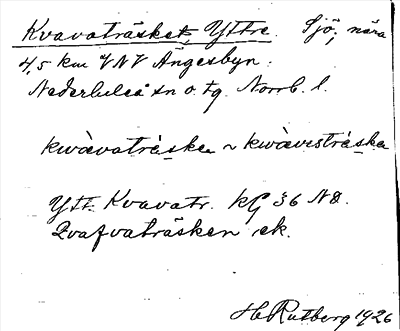 Kvavaträsket, Yttre. Sjö, nära
4,5 km VNV Ängesbyn.
Nederluleå sn o tg. Norrb. l.
kwàvatrȧska ~ kwàvestrȧska
Ytt. Kvavatr. kG 36 NO.
Qvafvaträsken ek.
H Rutberg 1926